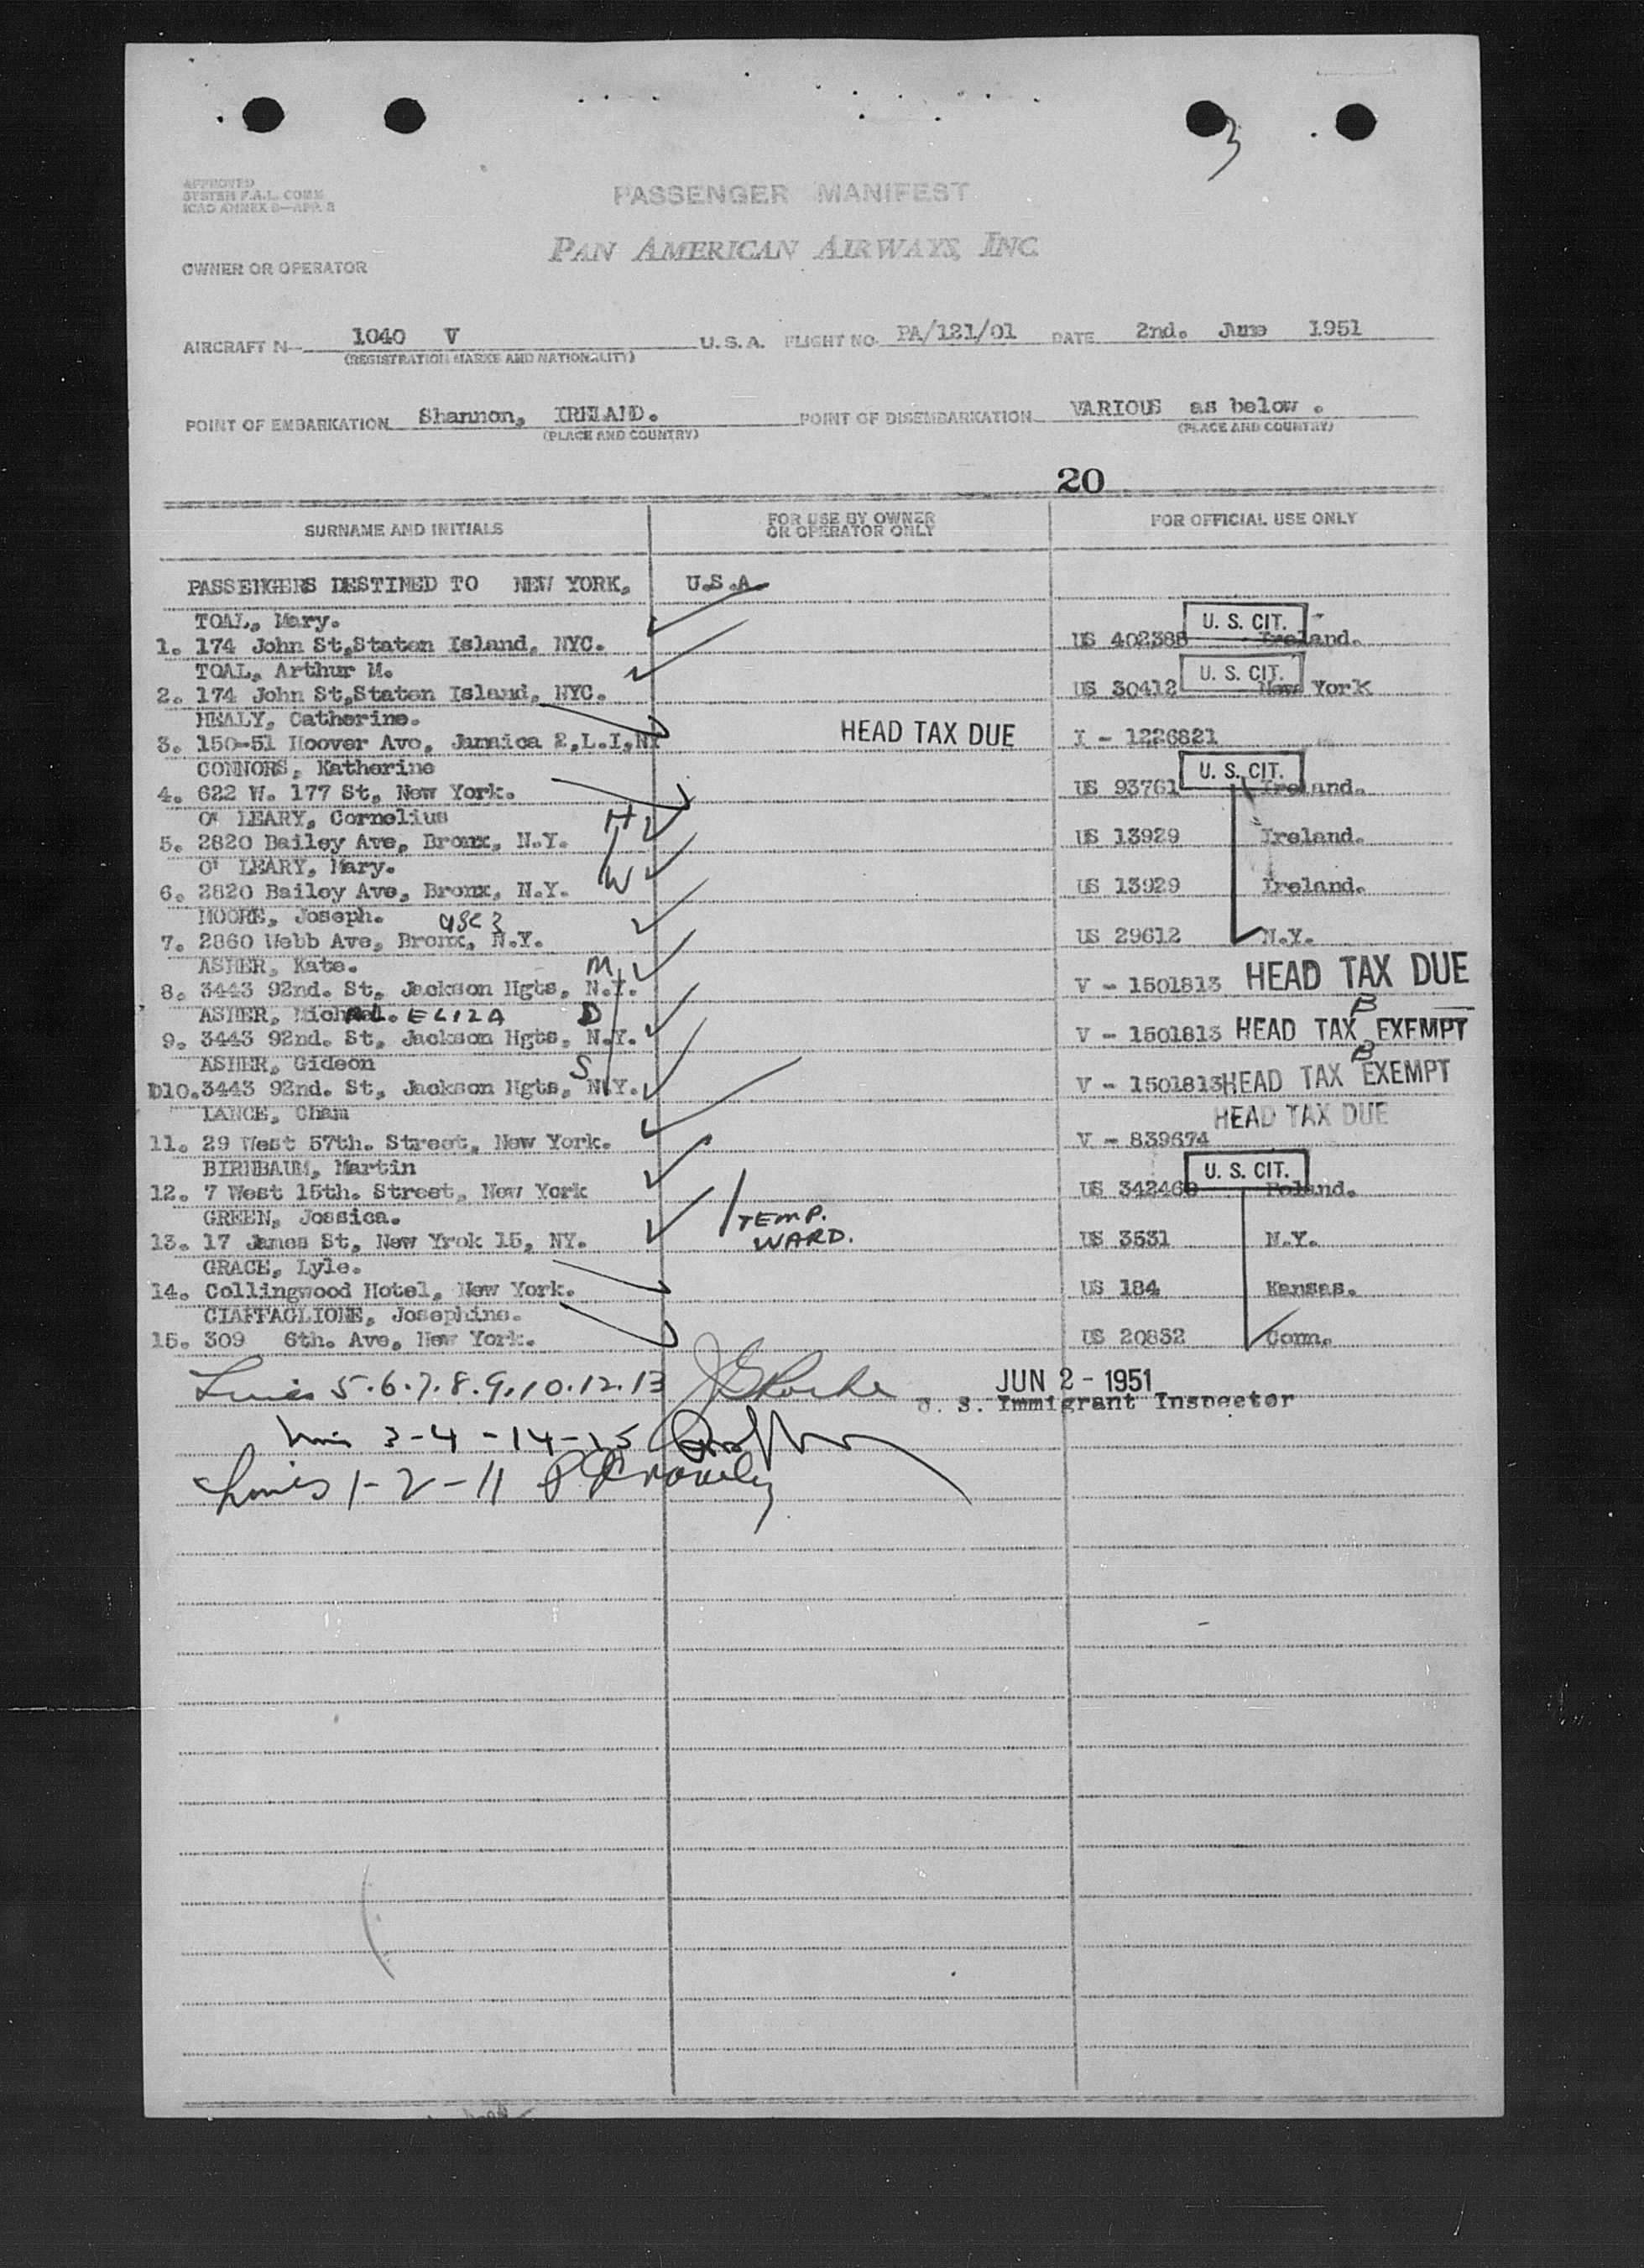 3
APPROVED
SYSTEM F.A.L. COMM
ICAO ANNEX 9—APP. 3
PASSENGER MANIFEST
PAN AMERICAN AIRWAYS, INC.
OWNER OR OPERATOR
AIRCRAFT N— 1040 V U.S.A. FLIGHT NO. PA/121/01 DATE 2nd. June 1951
(REGISTRATION MARKS AND NATIONALITY)
POINT OF EMBARKATION Shannon, IRELAND. POINT OF DISEMBARKATION VARIOUS as below .
(PLACE AND COUNTRY) (PLACE AND COUNTRY)
20
SURNAME AND INITIALS FOR USE BY OWNER OR OPERATOR ONLY FOR OFFICIAL USE ONLY
PASSENGERS DESTINED TO NEW YORK, U.S.A.
TOAL, Mary. U. S. CIT.
1. 174 John St,Staten Island, NYC. US 402388 Ireland.
TOAL, Arthur M. U. S. CIT.
2. 174 John St,Staten Island, NYC. US 30412 New York
HEALY, Catherine.
3. 150-51 Hoover Ave, Jamaica 2,L.I,NY HEAD TAX DUE I - 1226821
CONNORS, Katherine U. S. CIT.
4. 622 W. 177 St, New York. US 93761 Ireland.
O' LEARY, Cornelius H
5. 2820 Bailey Ave, Bronx, N.Y. US 13929 Ireland.
O' LEARY, Mary. W
6. 2820 Bailey Ave, Bronx, N.Y. US 13929 Ireland.
MOORE, Joseph.
7. 2860 Webb Ave, Bronx, N.Y. US 29612 N.Y.
ASHER, Kate. M
8. 3443 92nd. St, Jackson Hgts, N.Y. V - 1501813 HEAD TAX DUE
ASHER, Michal. ELIZA D B
9. 3443 92nd. St, Jackson Hgts, N.Y. V - 1501813 HEAD TAX EXEMPT
ASHER, Gideon S B
D10.3443 92nd. St, Jackson Hgts, N.Y. V - 1501813 HEAD TAX EXEMPT
LANCE, Cham HEAD TAX DUE
11. 29 West 57th. Street, New York. V - 839674
BIRNBAUM, Martin U. S. CIT.
12. 7 West 15th. Street, New York US 342460 Poland.
GREEN, Jessica. TEMP.
13. 17 James St, New Yrok 15, NY. WARD. US 3531 N.Y.
GRACE, Lyle.
14. Collingwood Hotel, New York. US 184 Kansas.
CIAFFAGLIONE, Josephine.
15. 309 6th. Ave, New York. US 20832 Conn.
Lines 5.6.7.8.9.10.12.13 JUN 2 - 1951
U. S. Immigrant Inspector
Lines 3-4-14-15
Lines 1-2-11